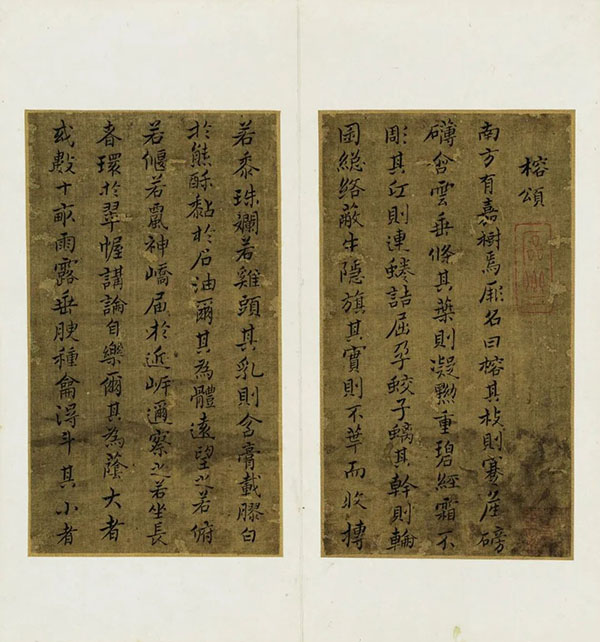 榕頌
南方有嘉樹焉厥名曰榕其枝則蹇崖磅
礴會雲垂條其葉則凝黝重碧經霜不
彫其則連蜷詰屈孕蛟子螭其幹則輪
囷總絡蔽牛隱旗其實則不華而收摶
若黍珠斕若雞頭其乳則含膏載膠白
於熊酥黏於石油爾其為體遠望之若俯
若偃若神嶠屆於近岸邇察之若坐長
者環於翠幄講論自樂爾其為蔭大者
或數十畝雨露垂腴種龠得斗其小者